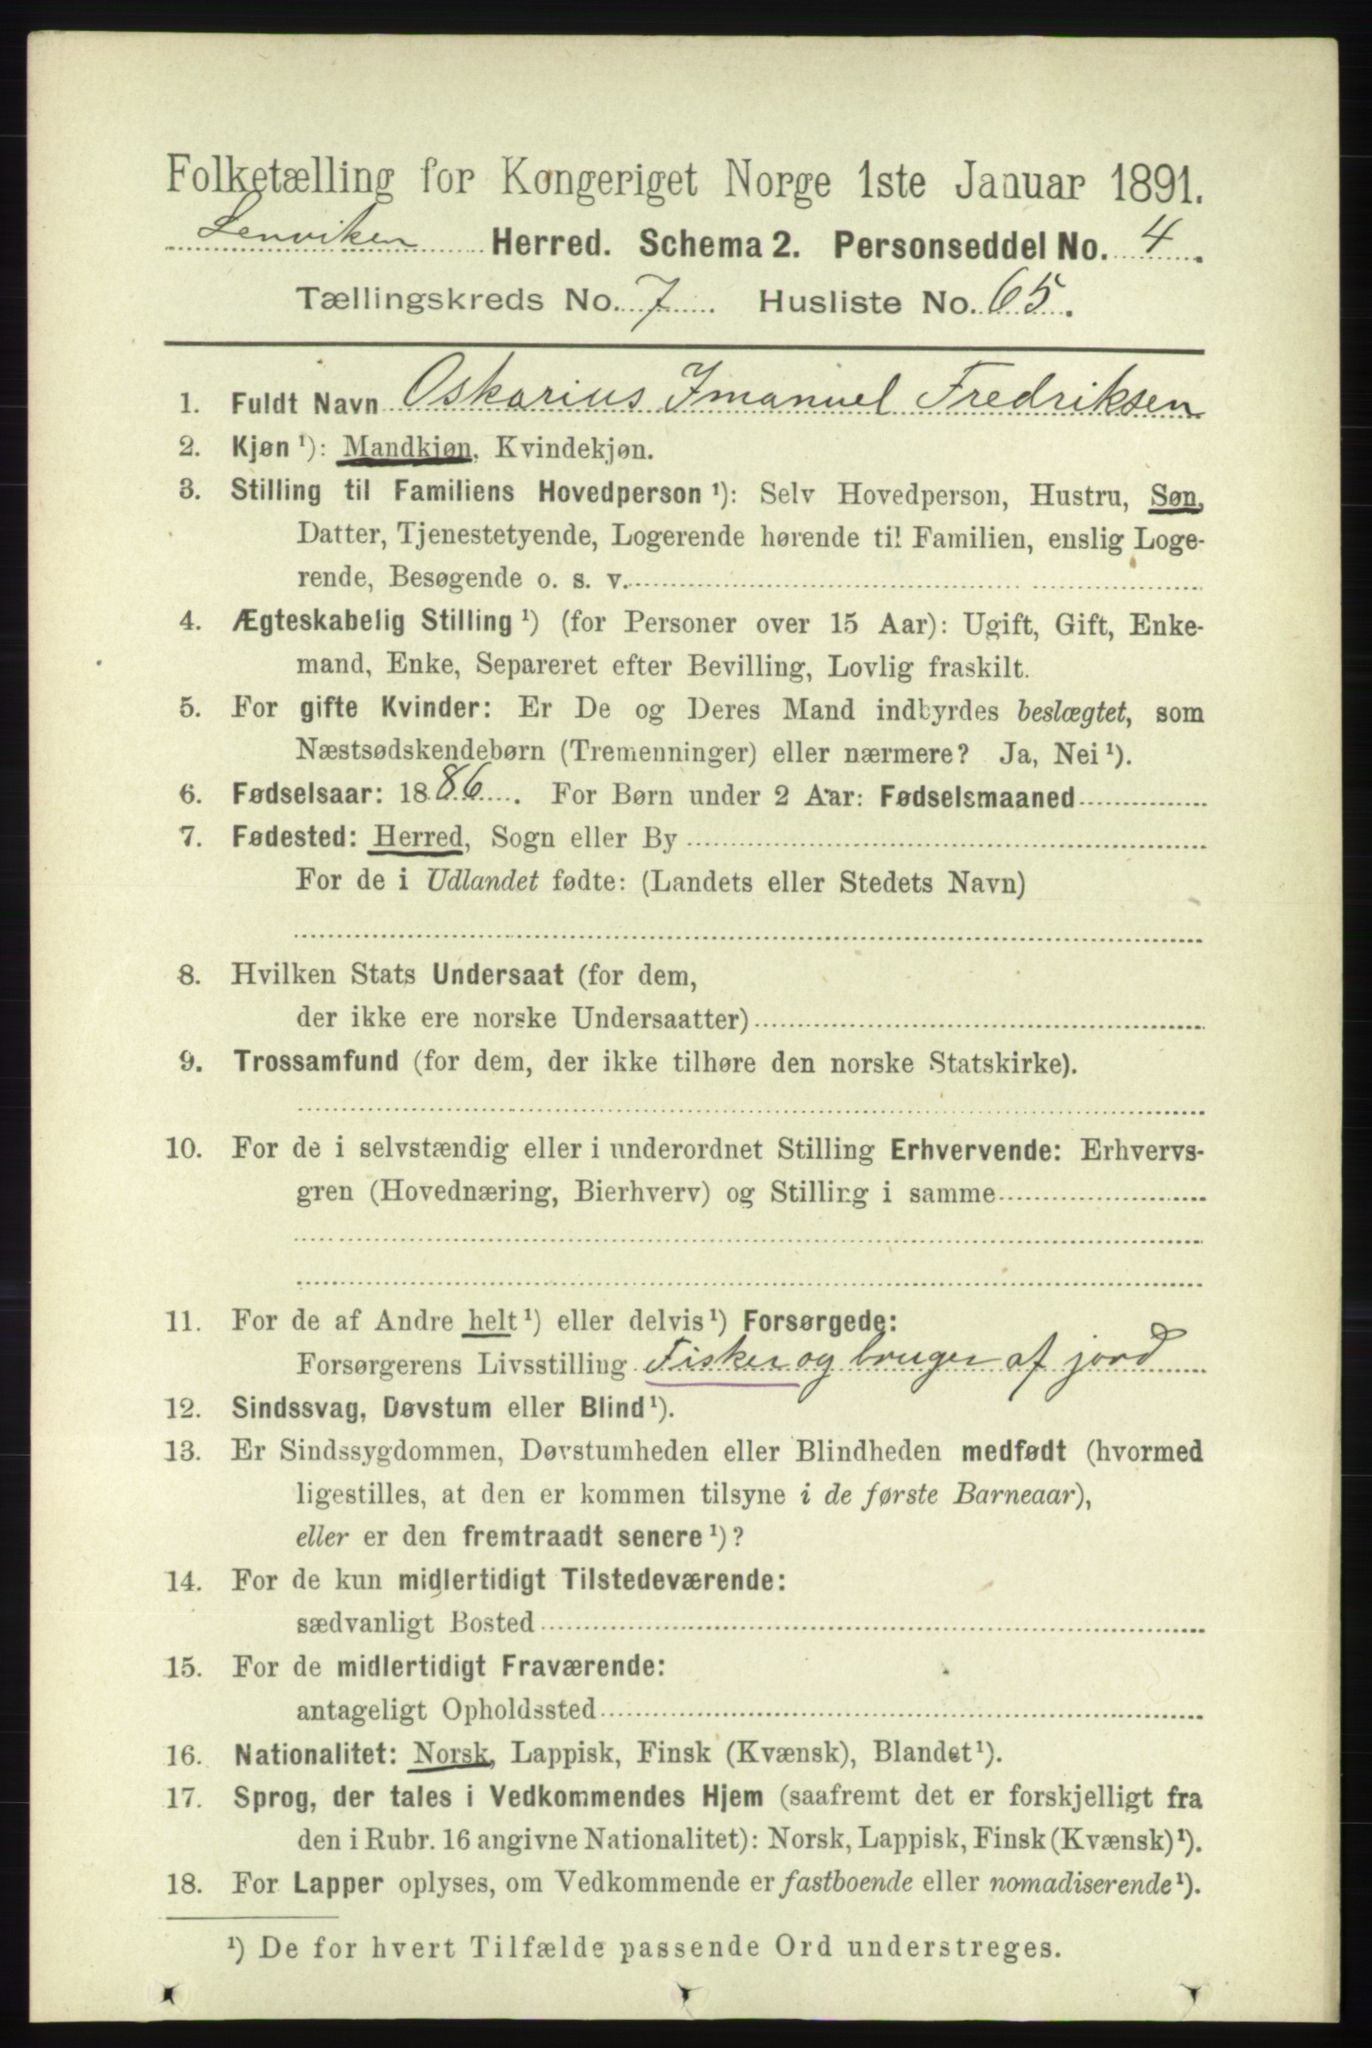 Folketælling for Kongeriget Norge 1ste Januar 1891.
Lenviken Herred. Schema 2. Personseddel No. 4.
Tællingskreds No. 7. Husliste No. 65.
1. Fuldt Navn Oskarius Imanuel Fredriksen
2. Kjøn ¹): Mandkjøn, Kvindekjøn.
3. Stilling til Familiens Hovedperson ¹): Selv Hovedperson, Hustru, Søn,
Datter, Tjenestetyende, Logerende hørende til Familien, enslig Loge-
rende, Besøgende o. s. v.
4. Ægteskabelig Stilling ¹) (for Personer over 15 Aar): Ugift, Gift, Enke-
mand, Enke, Separeret efter Bevilling, Lovlig fraskilt.
5. For gifte Kvinder: Er De og Deres Mand indbyrdes beslægtet, som
Næstsødskendebørn (Tremenninger) eller nærmere? Ja, Nei ¹).
6. Fødselsaar: 1886. For Børn under 2 Aar: Fødselsmaaned
7. Fødested: Herred, Sogn eller By
For de i Udlandet fødte: (Landets eller Stedets Navn)
8. Hvilken Stats Undersaat (for dem,
der ikke ere norske Undersaatter)
9. Trossamfund (for dem, der ikke tilhøre den norske Statskirke).
10. For de i selvstændig eller i underordnet Stilling Erhvervende: Erhvervs-
gren (Hovednæring, Bierhverv) og Stilling i samme
11. For de af Andre helt ¹) eller delvis ¹) Forsørgede:
Forsørgerens Livsstilling Fisker og bruger af jord
12. Sindssvag, Døvstum eller Blind ¹).
13. Er Sindssygdommen, Døvstumheden eller Blindheden medfødt (hvormed
ligestilles, at den er kommen tilsyne i de første Barneaar),
eller er den fremtraadt senere ¹)?
14. For de kun midlertidigt Tilstedeværende:
sædvanligt Bosted
15. For de midlertidigt Fraværende:
antageligt Opholdssted
16. Nationalitet: Norsk, Lappisk, Finsk (Kvænsk), Blandet ¹).
17. Sprog, der tales i Vedkommendes Hjem (saafremt det er forskjelligt fra
den i Rubr. 16 angivne Nationalitet): Norsk, Lappisk, Finsk (Kvænsk) ¹).
18. For Lapper oplyses, om Vedkommende er fastboende eller nomadiserende ¹).
¹) De for hvert Tilfælde passende Ord understreges.